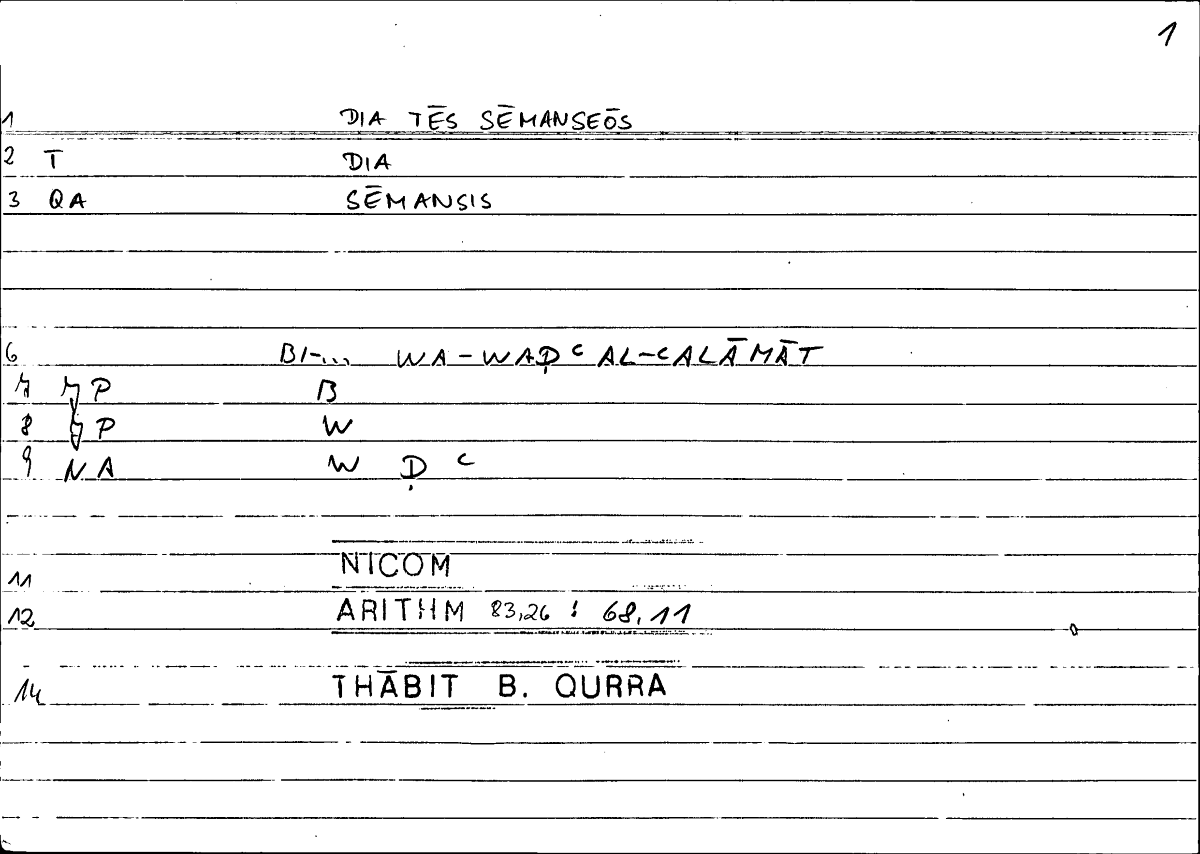 1
1 DIA TĒS SĒMANSEŌS
2 T DIA
3 QA SĒMANSIS
6 BI-... WA-WAḌc AL-cALĀMĀT
7 P B
8 P W
9 NA W Ḍ c
11 NICOM
12 ARITHM 83,26 : 68,11
14 THĀBIT B. QURRA